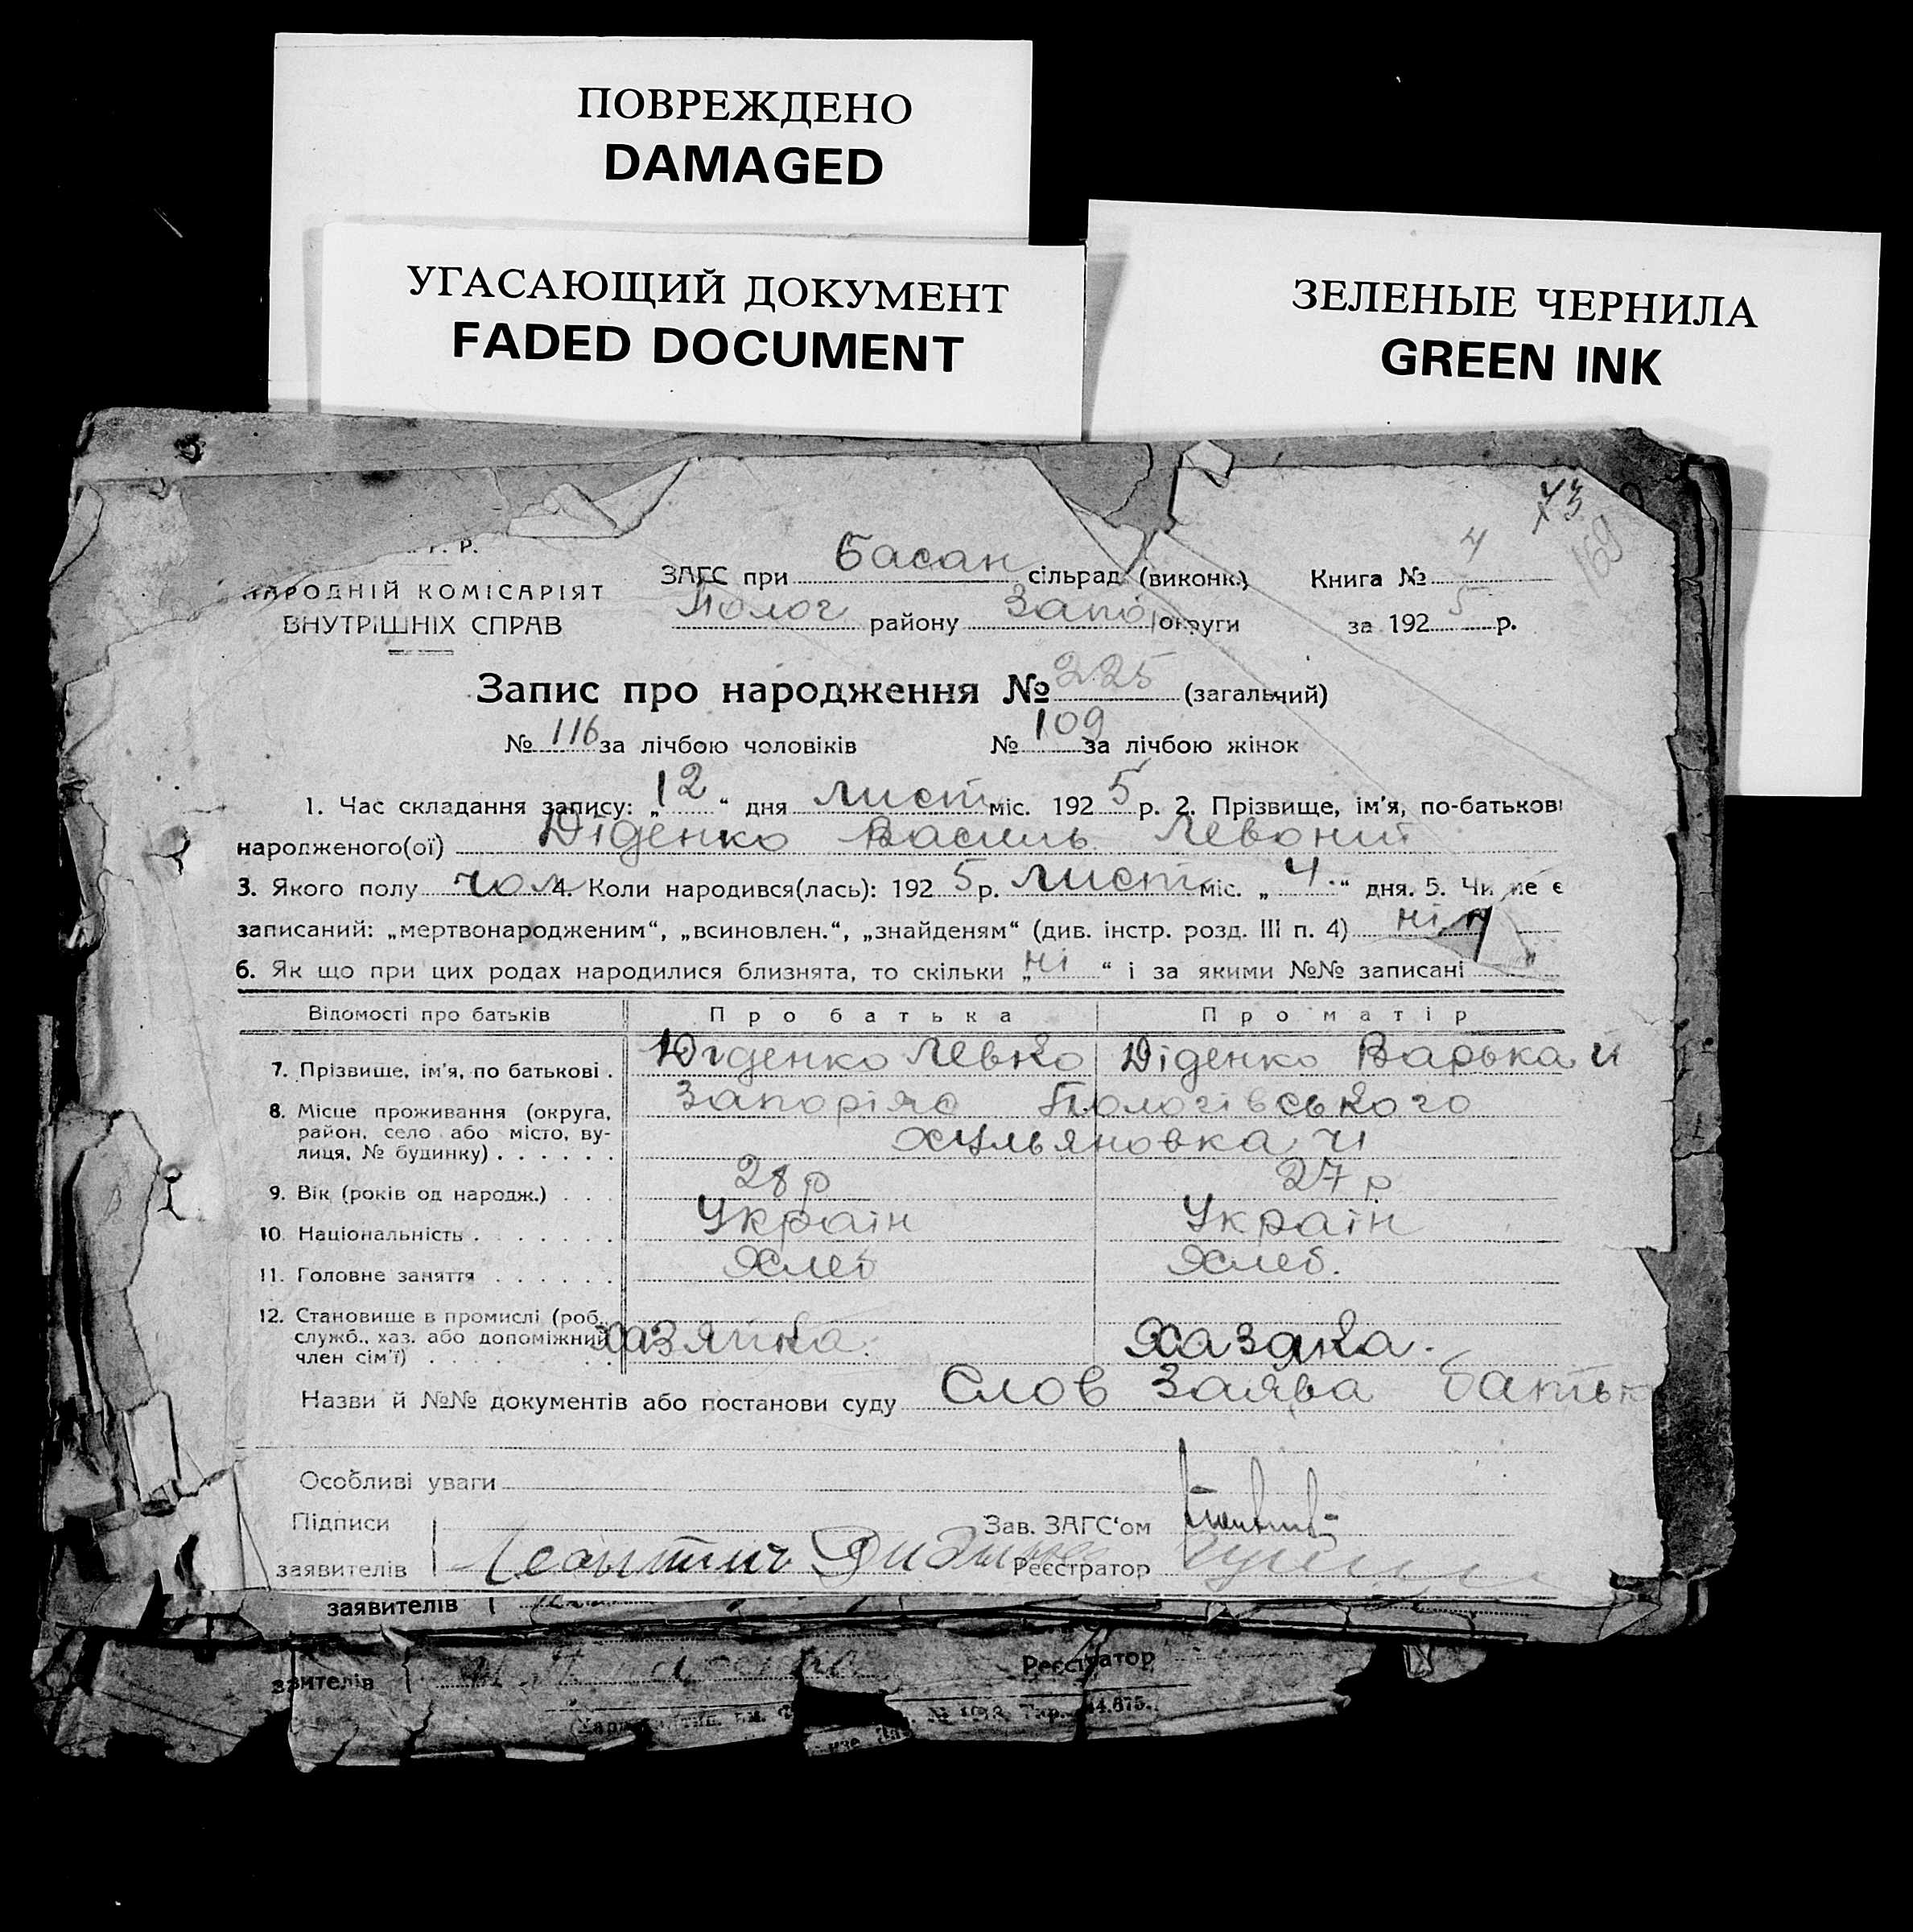 ПОВРЕЖДЕНО
DAMAGED
УГАСАЮЩИЙ ДОКУМЕНТ
FADED DOCUMENT
ЗЕЛЕНЫЕ ЧЕРНИЛА
GREEN INK
73
169
Р. Р.
НАРОДНІЙ КОМІСАРІЯТ
ВНУТРІШНІХ СПРАВ
ЗАГС при Басан сільрад. (виконк.)
Полог району Запор округи
Книга № 4
за 192 5 р.
Запис про народження № 225 (загальний)
№ 116 за лічбою чоловіків № 109 за лічбою жінок
1. Час складання запису: „ 12 “ дня лист міс. 192 5 р. 2. Прізвище, ім'я, по-батькові
народженого(ої) Діденко Василь Левоний
3. Якого полу чол 4. Коли народився(лась): 192 5 р. лист міс. „ 4. “ дня. 5. Чи не є
записаний: „мертвонародженим“, „всиновлен.“, „знайденям“ (див. інстр. розд. III п. 4) ні
6. Як що при цих родах народилися близнята, то скільки „ ні “ і за якими №№ записані
Відомості про батьків Про батька Про матір
7. Прізвище, ім'я, по батькові . Діденко Левко Діденко Варька
8. Місце проживання (округа, район, село або місто, вулиця, № будинку) . . . . . . Запоріж Пологівського
хульяновка
9. Вік (років од народж.) . . . 28 р 27 р
10. Національність . . . . . . . Україн Україн
11. Головне заняття . . . . . . Хлеб Хлеб.
12. Становище в промислі (роб., служб., хаз. або допоміжний член сім'ї) хазяйка. Хазяка.
Назви й №№ документів або постанови суду Слов Заява батьк
Особливі уваги
Підписи Зав. ЗАГС'ом
заявителів Реєстратор
заявителів
Реєстратор